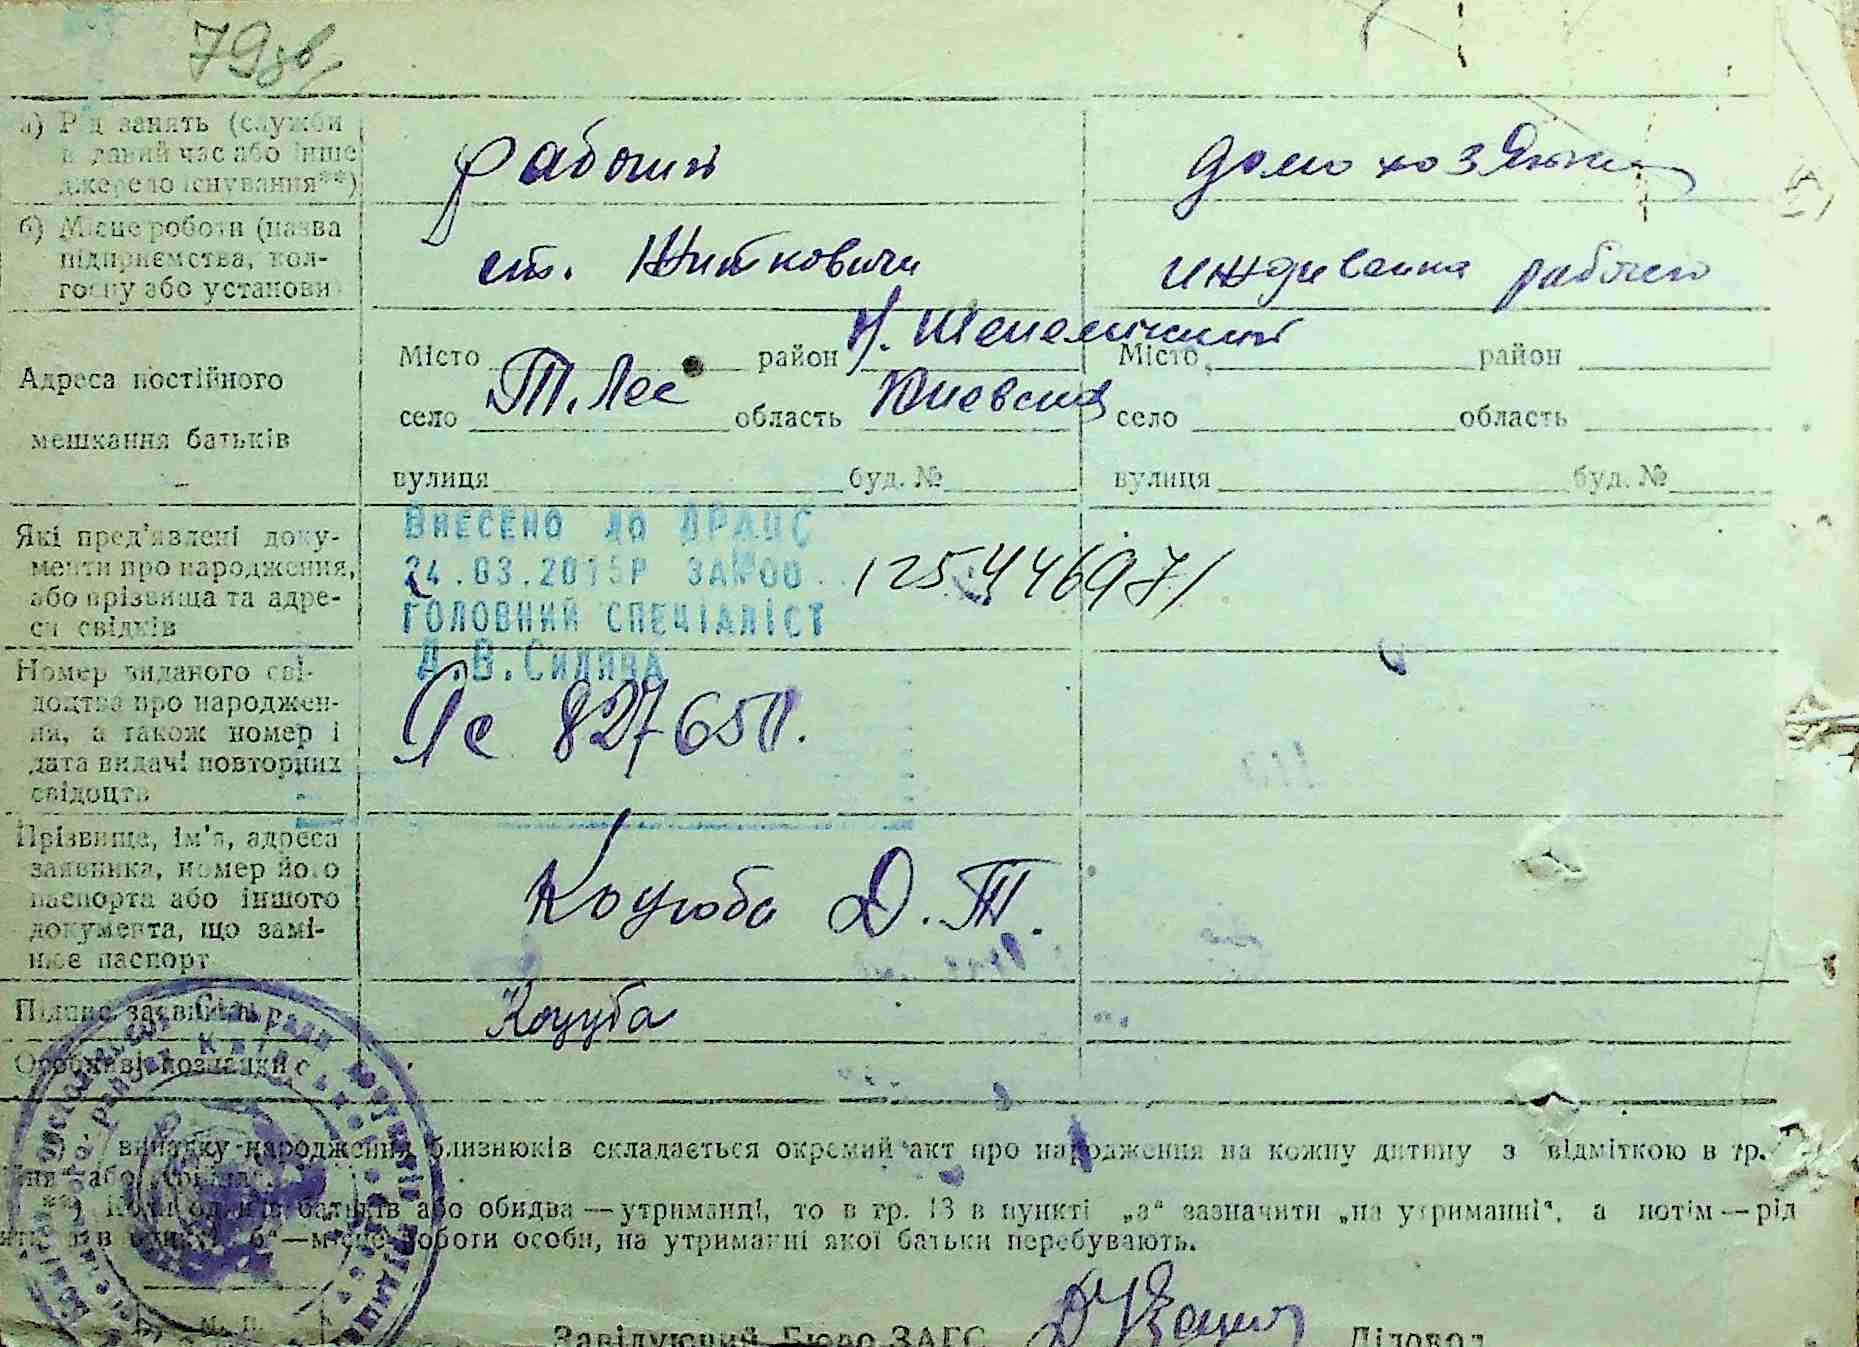 79зв/
а) Рід занять (служби
в даний час або інше
джерело існування**)
рабочий
домохозяйка
б) Місце роботи (назва
підприємства, кол-
госпу або установи)
ст. Житковичи
иждивенка рабочего
Адреса постійного
мешкання батьків
Місто район Н. Шепелический
село Т. Лес область Киевская
вулиця буд. №
Місто район
село область
вулиця буд. №
Які пред'явлені доку-
менти про народження,
або прізвища та адре-
си свідків
ВНЕСЕНО ДО ДРАЦС
24.03.2015Р ЗА №00
12544697/
ГОЛОВНИЙ СПЕЦІАЛІСТ
Номер виданого сві-
доцтва про народжен-
ня, а також номер і
дата видачі повторних
свідоцтв
827650.
Прізвище, ім'я, адреса
заявника, номер його
паспорта або іншого
документа, що замі-
нює паспорт
Коцюба Д. Т.
Підпис заявників
Коцуба
Особливі познаки
випадку народження близнюків складається окремий акт про народження на кожну дитину з відміткою в гр.
**) Коли один із батьків або обидва — утриманці, то в гр. 13 в пункті „а“ зазначити „на утриманні“, а потім — рід
„б“ — місце роботи особи, на утриманні якої батьки перебувають.
М. П.
Завідуючий Бюро ЗАГС Діловод